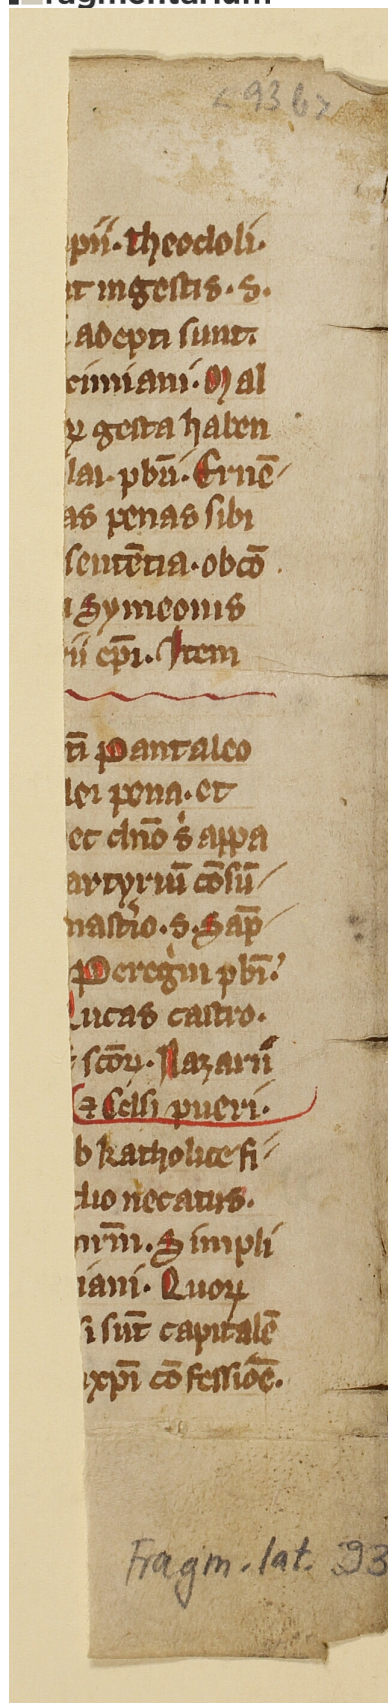 fragmentarium
<93b>
pii. theodoli.
nt in gestis. S.
adepti sunt.
cimiani. Mal
ꝝ gesta haben
lai. pbr̄i. Ernē
as penas sibi
sentētia. ob cō
Symeonis
rii ep̄i. Item
Pantaleo
lei pena. et
et dn̄o s appa
artyriū cōsū
nastio. S. Sap̄
Peregini pbr̄i.
Lucas castro.
sc̄oꝝ. Nazarii
⁊ Celsi pueri.
b katholice fi
dio necatus.
mr̄m. Simpli
iani. Quoꝝ
si sūt capitalē
xp̄i cōfessiōē.
Fragm. lat. 93